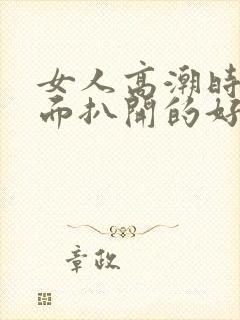 女人高潮時
而扒開的好
章政